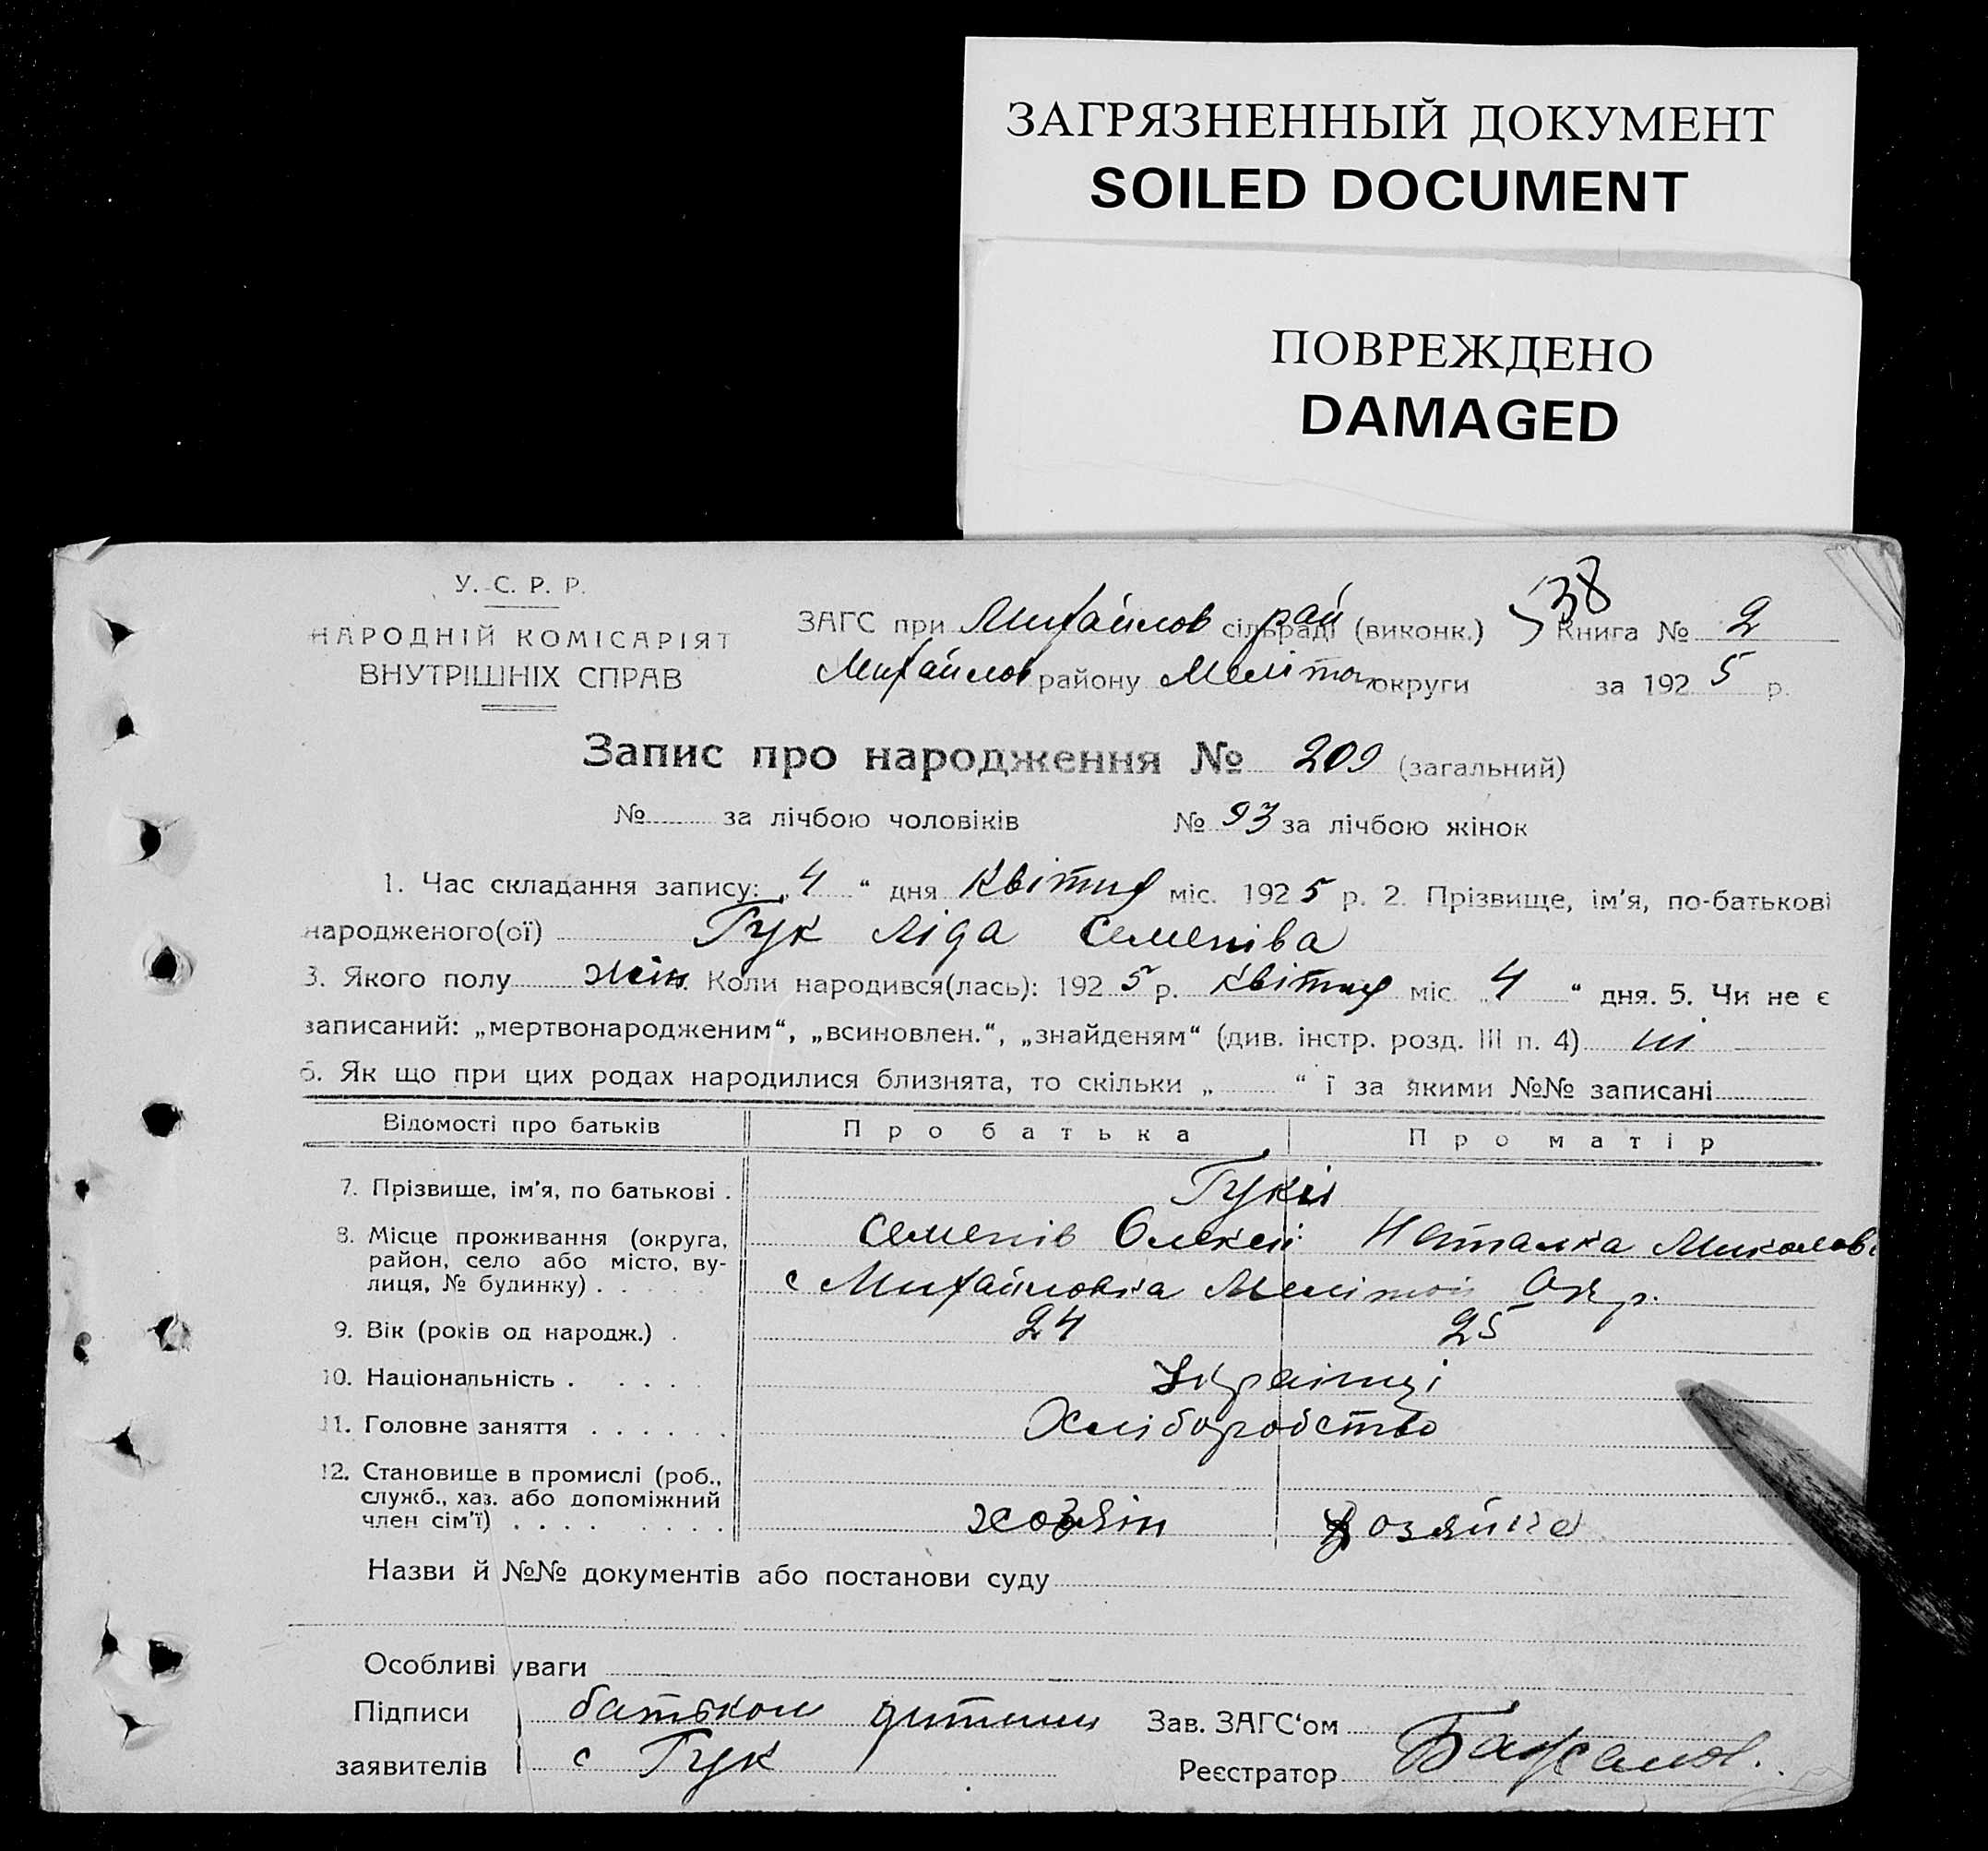 ЗАГРЯЗНЕННЫЙ ДОКУМЕНТ
SOILED DOCUMENT
ПОВРЕЖДЕНО
DAMAGED
У. С. Р. Р.
НАРОДНІЙ КОМІСАРІЯТ
ВНУТРІШНІХ СПРАВ
38
ЗАГС при Михайлов рай сільраді (виконк.) Книга № 2
Михайлов району Мелітоп округи за 1925 р.
Запис про народження № 209 (загальний)
№ за лічбою чоловіків № 93 за лічбою жінок
1. Час складання запису: „4“ дня Квітня міс. 1925 р. 2. Прізвище, ім'я, по-батькові
народженого(ої) Гук Ліда Семенівa
3. Якого полу жін. Коли народився(лась): 1925 р. Квітня міс. „4“ дня. 5. Чи не є
записаний: „мертвонародженим“, „всиновлен.“, „знайденям“ (див. інстр. розд. III п. 4) ні
6. Як що при цих родах народилися близнята, то скільки „ “ ї за якими №№ записані
Відомості про батьків Про батька Про матір
7. Прізвище, ім'я, по батькові . Гуки
8. Місце проживання (округа, район, село або місто, вулиця, № будинку) . . . . . Семенів Олексій Наталка Миколов
с Михайловка Меліто Окр.
9. Вік (років од народж.) . 24 25
10. Національність . . . . . Українці
11. Головне заняття . . . . . . Хліборобство
12. Становище в промислі (роб., служб., хаз. або допоміжний член сім'ї) . . . . . . . . . хозяін хозяйка
Назви й №№ документів або постанови суду
Особливі уваги
Підписи батьком дитини Зав. ЗАГС'ом
заявителів с Гук Реєстратор